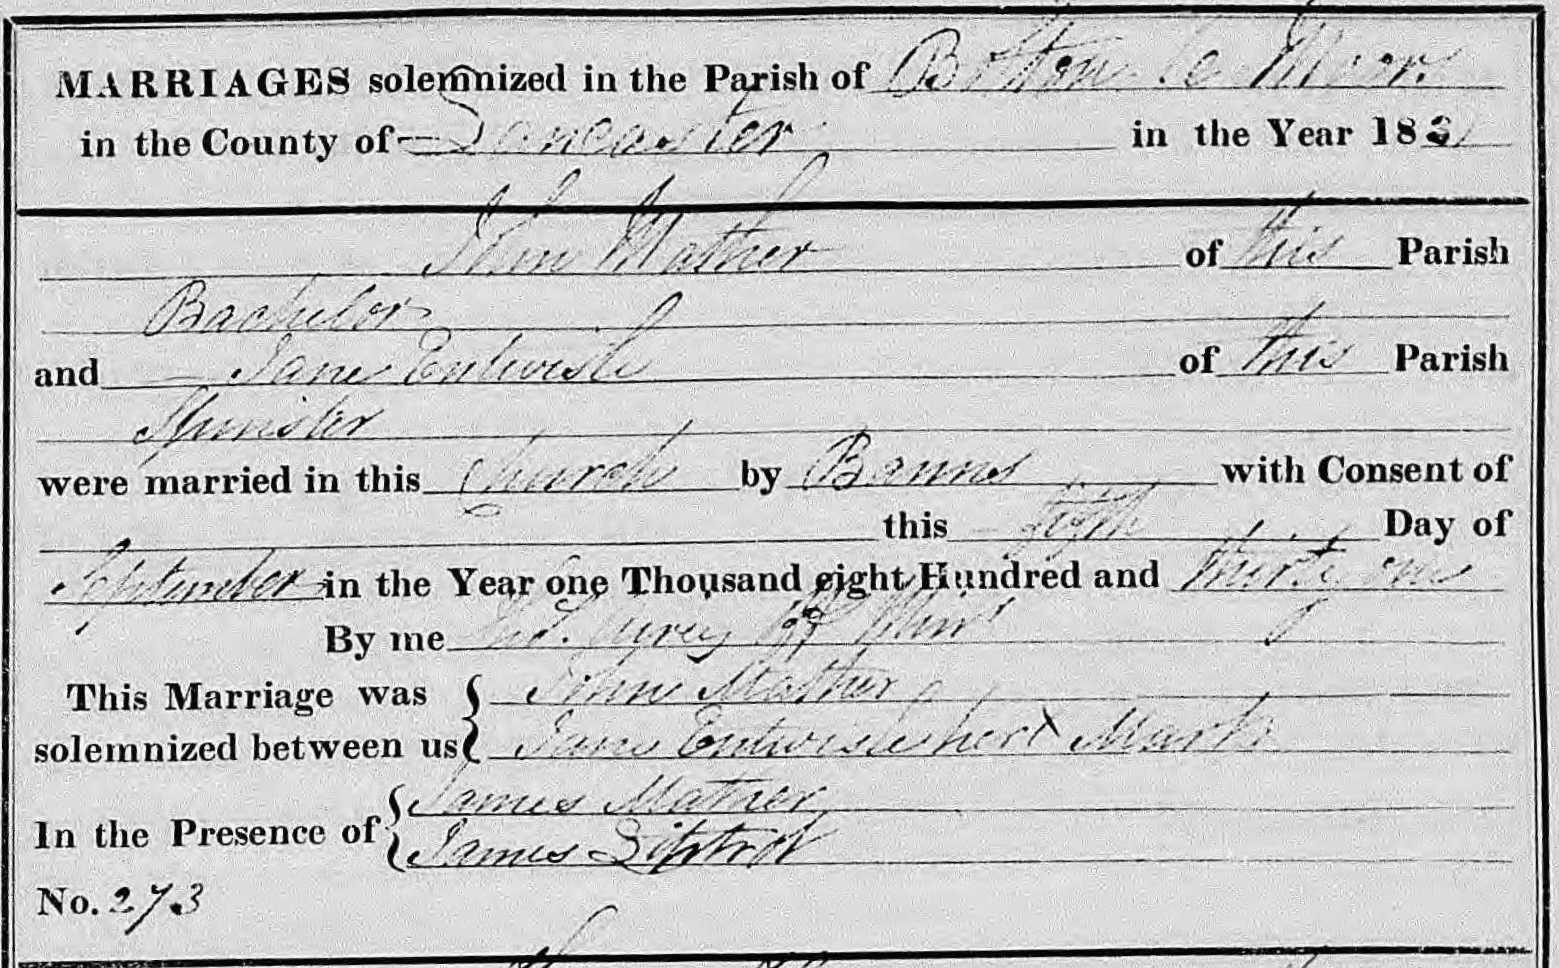 MARRIAGES solemnized in the Parish of Bolton le Moors
in the County of Lancaster in the Year 1831
John Mather of this Parish
Bachelor
and Jane Entwisle of this Parish
Spinster
were married in this Church by Banns with Consent of
this Day of
September in the Year one Thousand eight Hundred and thirty one
By me
This Marriage was solemnized between us { John Mather
Jane Entwisle her X Mark
In the Presence of { James Mather
James Liptrot
No. 273